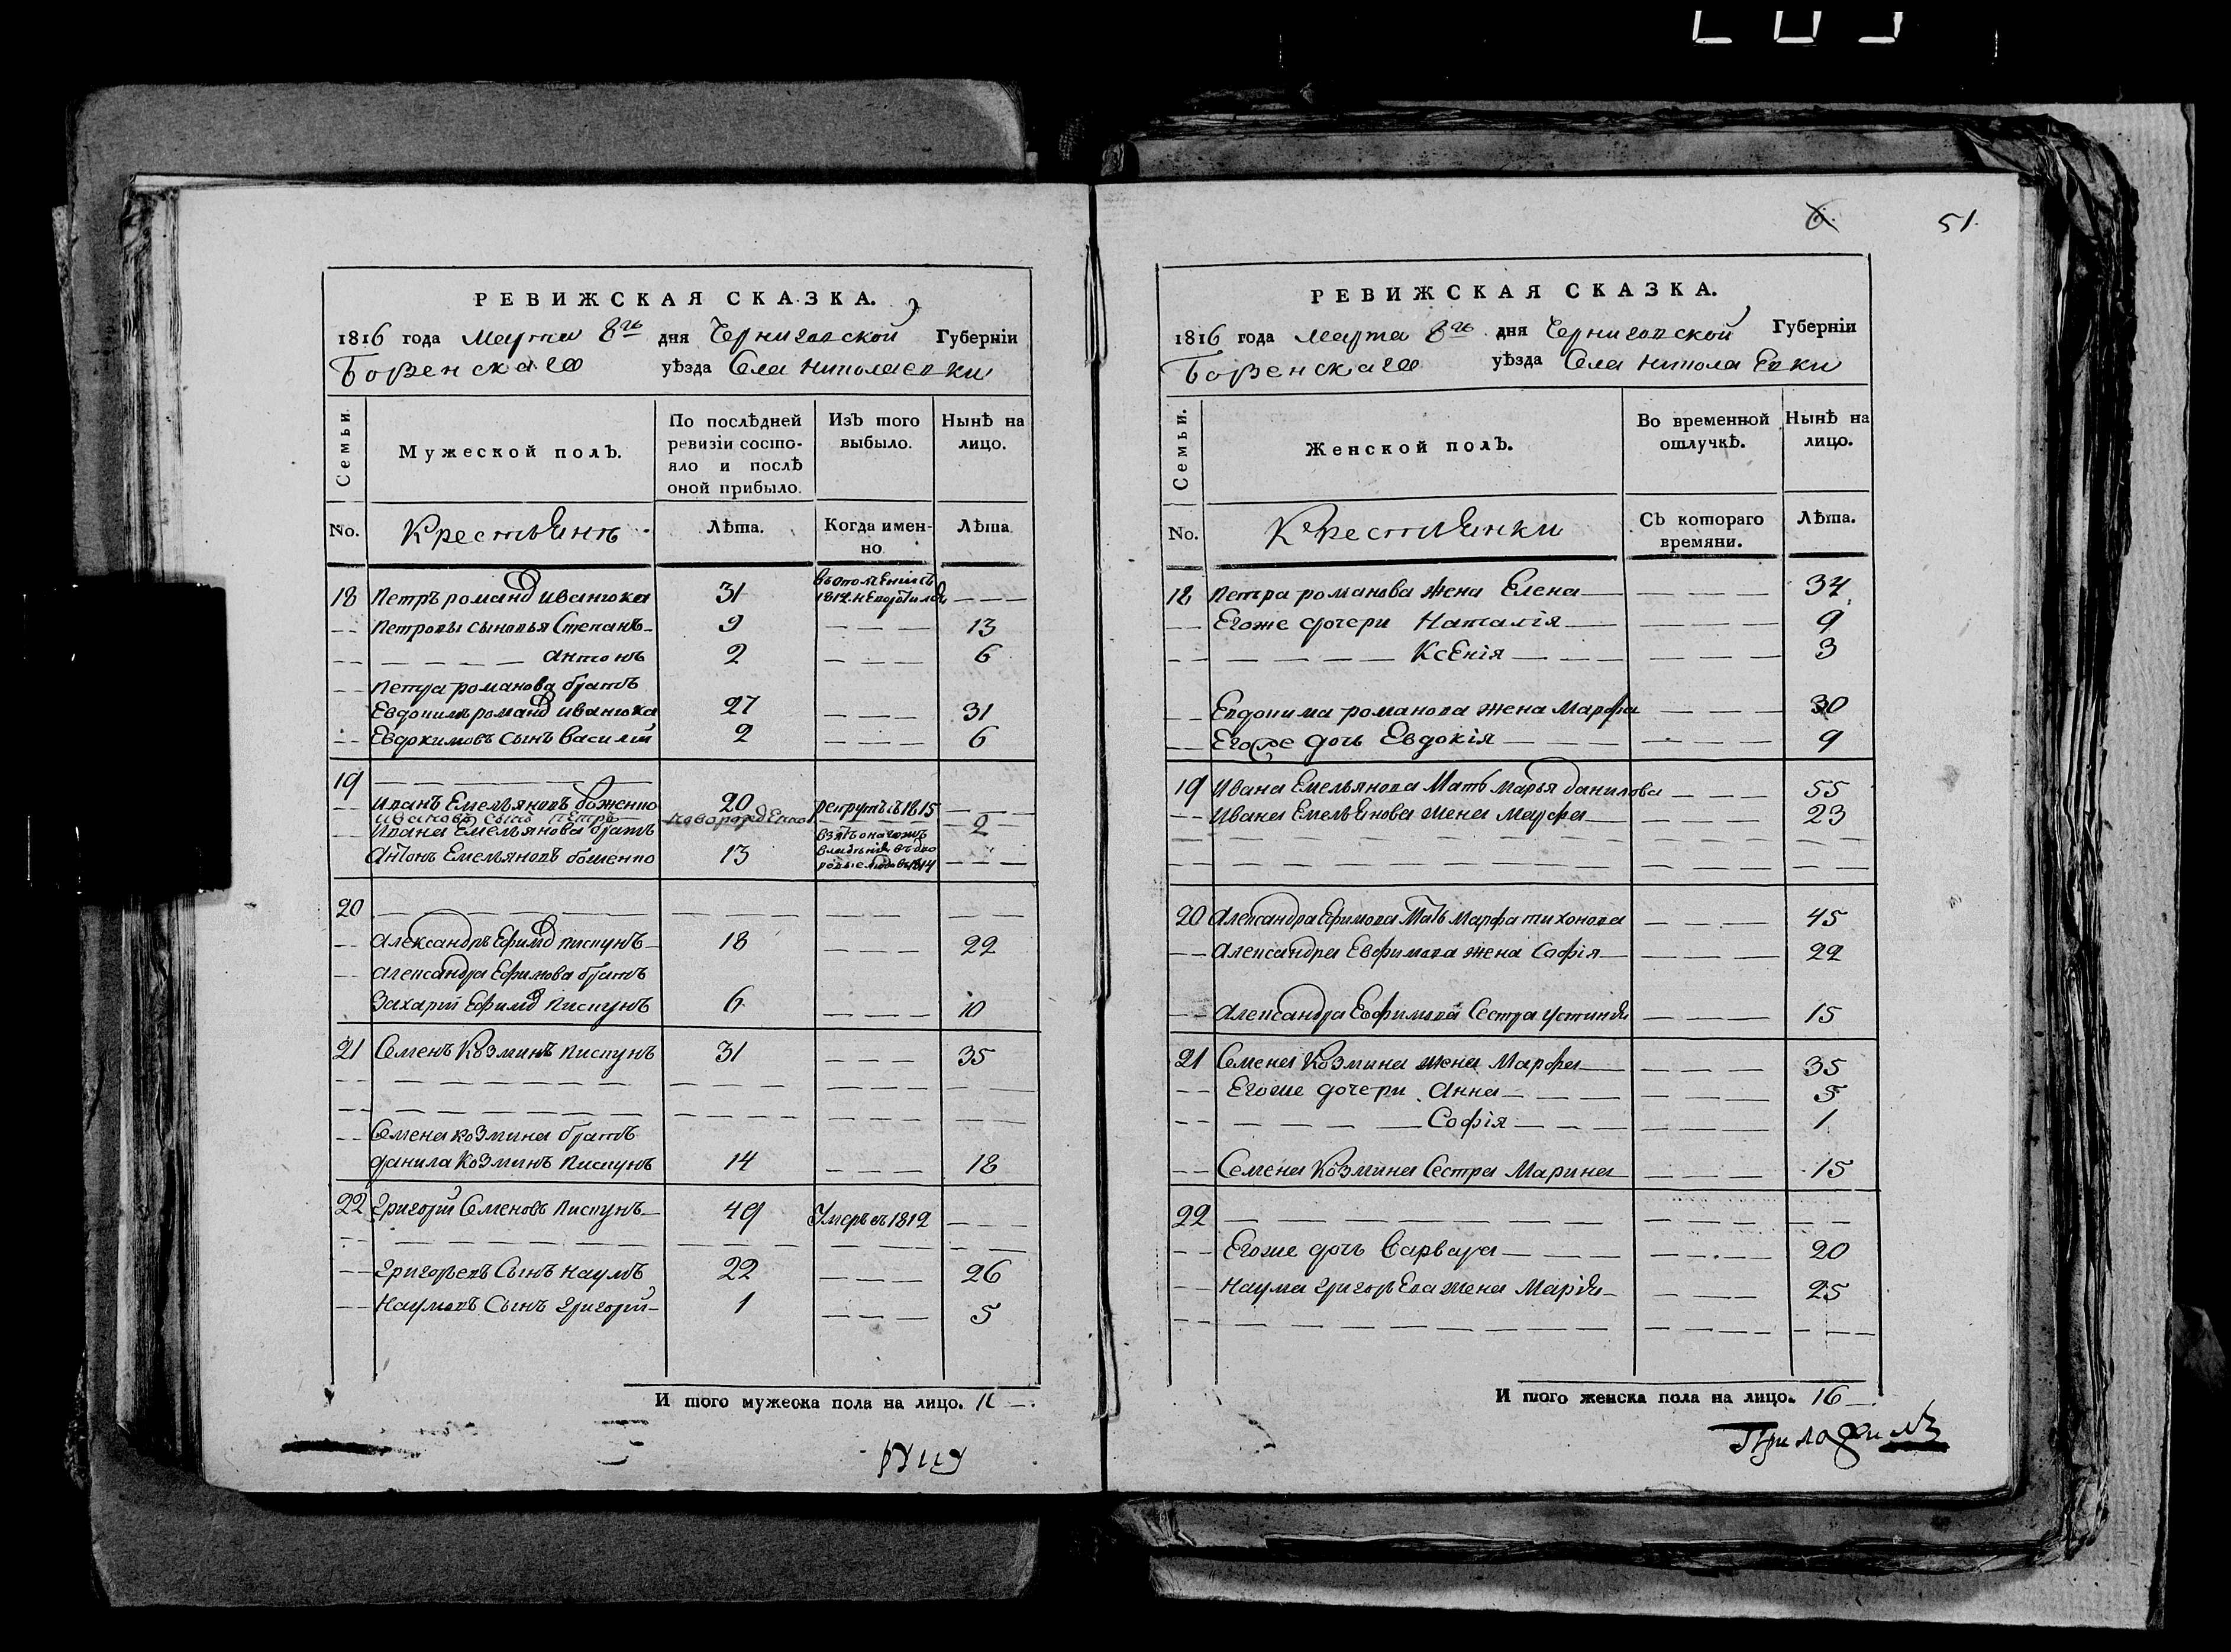 51.
РЕВИЖСКАЯ СКАЗКА.
1816 года Марта 8го дня Черниговской Губерніи
Борзенскаго уѣзда Села Николаевки
Семьи.
Мужеской полъ.
По послѣдней ревизіи состояло и послѣ оной прибыло.
Изъ того выбыло.
Нынѣ на лицо.
No. Крестьянъ Лѣта. Когда именно Лѣта
18 Петръ Романовъ Иванюка 31 1812 — — —
— — Петровы сыновья Степанъ 9 — — — 13
— — — — — — — Антонъ 2 — — — 6
— — Петра Романова братъ
Евдокимъ Романовъ Иванюка 27 — — — 31
— — Евдокимовъ сынъ Василій 2 — — — 6
19 — — — — — — —
— Иванъ Емельяновъ Боженко 20 рекрутъ въ 1815 — —
Ивановъ сынъ Петръ новорожденной — — — 2
— Ивана Емельянова братъ
Антонъ Емельяновъ Боженко 13 взятъ въ 1814 — — —
20 — — — — — — — —
— Александръ Ефимовъ Пискунъ 18 — — 22
— Александра Ефимова братъ
Захарій Ефимовъ Пискунъ 6 — — — 10
21 Семенъ Козминъ Пискунъ 31 — — — 35
— — Семена Козмина братъ
Данила Козминъ Пискунъ 14 — — — 18
22 Григорій Семеновъ Пискунъ 49 Умеръ въ 1812 — — —
— — Григорьевъ Сынъ Наумъ 22 — — — 26
— — Наумовъ Сынъ Григорій 1 — — — 5
И того мужеска пола на лицо. 11
руку
РЕВИЖСКАЯ СКАЗКА.
1816 года Марта 8го дня Черниговской Губерніи
Борзенскаго уѣзда Села Николаевки
Семьи.
Женской полъ.
Во временной отлучкѣ.
Нынѣ на лицо.
No. Крестьянки Съ котораго времяни. Лѣта.
18 Петра Романова жена Елена — — — 34
— — Егоже дочери Наталія — — — 9
— — — — — — — Ксенія — — — 3
— — Евдокима Романова жена Марфа — — — 30
— — Егоже дочь Евдокія — — — 9
19 Ивана Емельянова Мать Марья Данилова — — — 55
— — Ивана Емельянова жена Марфа — — — 23
20 Александра Ефимова Мать Марфа Тихонова — — — 45
— — Александра Евфимова жена Софія — — — 22
— — Александра Евфимова Сестра Устинья — — — 15
21 Семена Козмина жена Марфа — — — 35
— — Егоже дочери Анна — — — 5
— — — — — — Софія — — — 1
— — Семена Козмина Сестра Марина — — — 15
22 — — — — — — —
— — Егоже дочь Варвара — — — 20
— — Наума Григорьева жена Марія — — — 25
И того женска пола на лицо. 16
Приложилъ